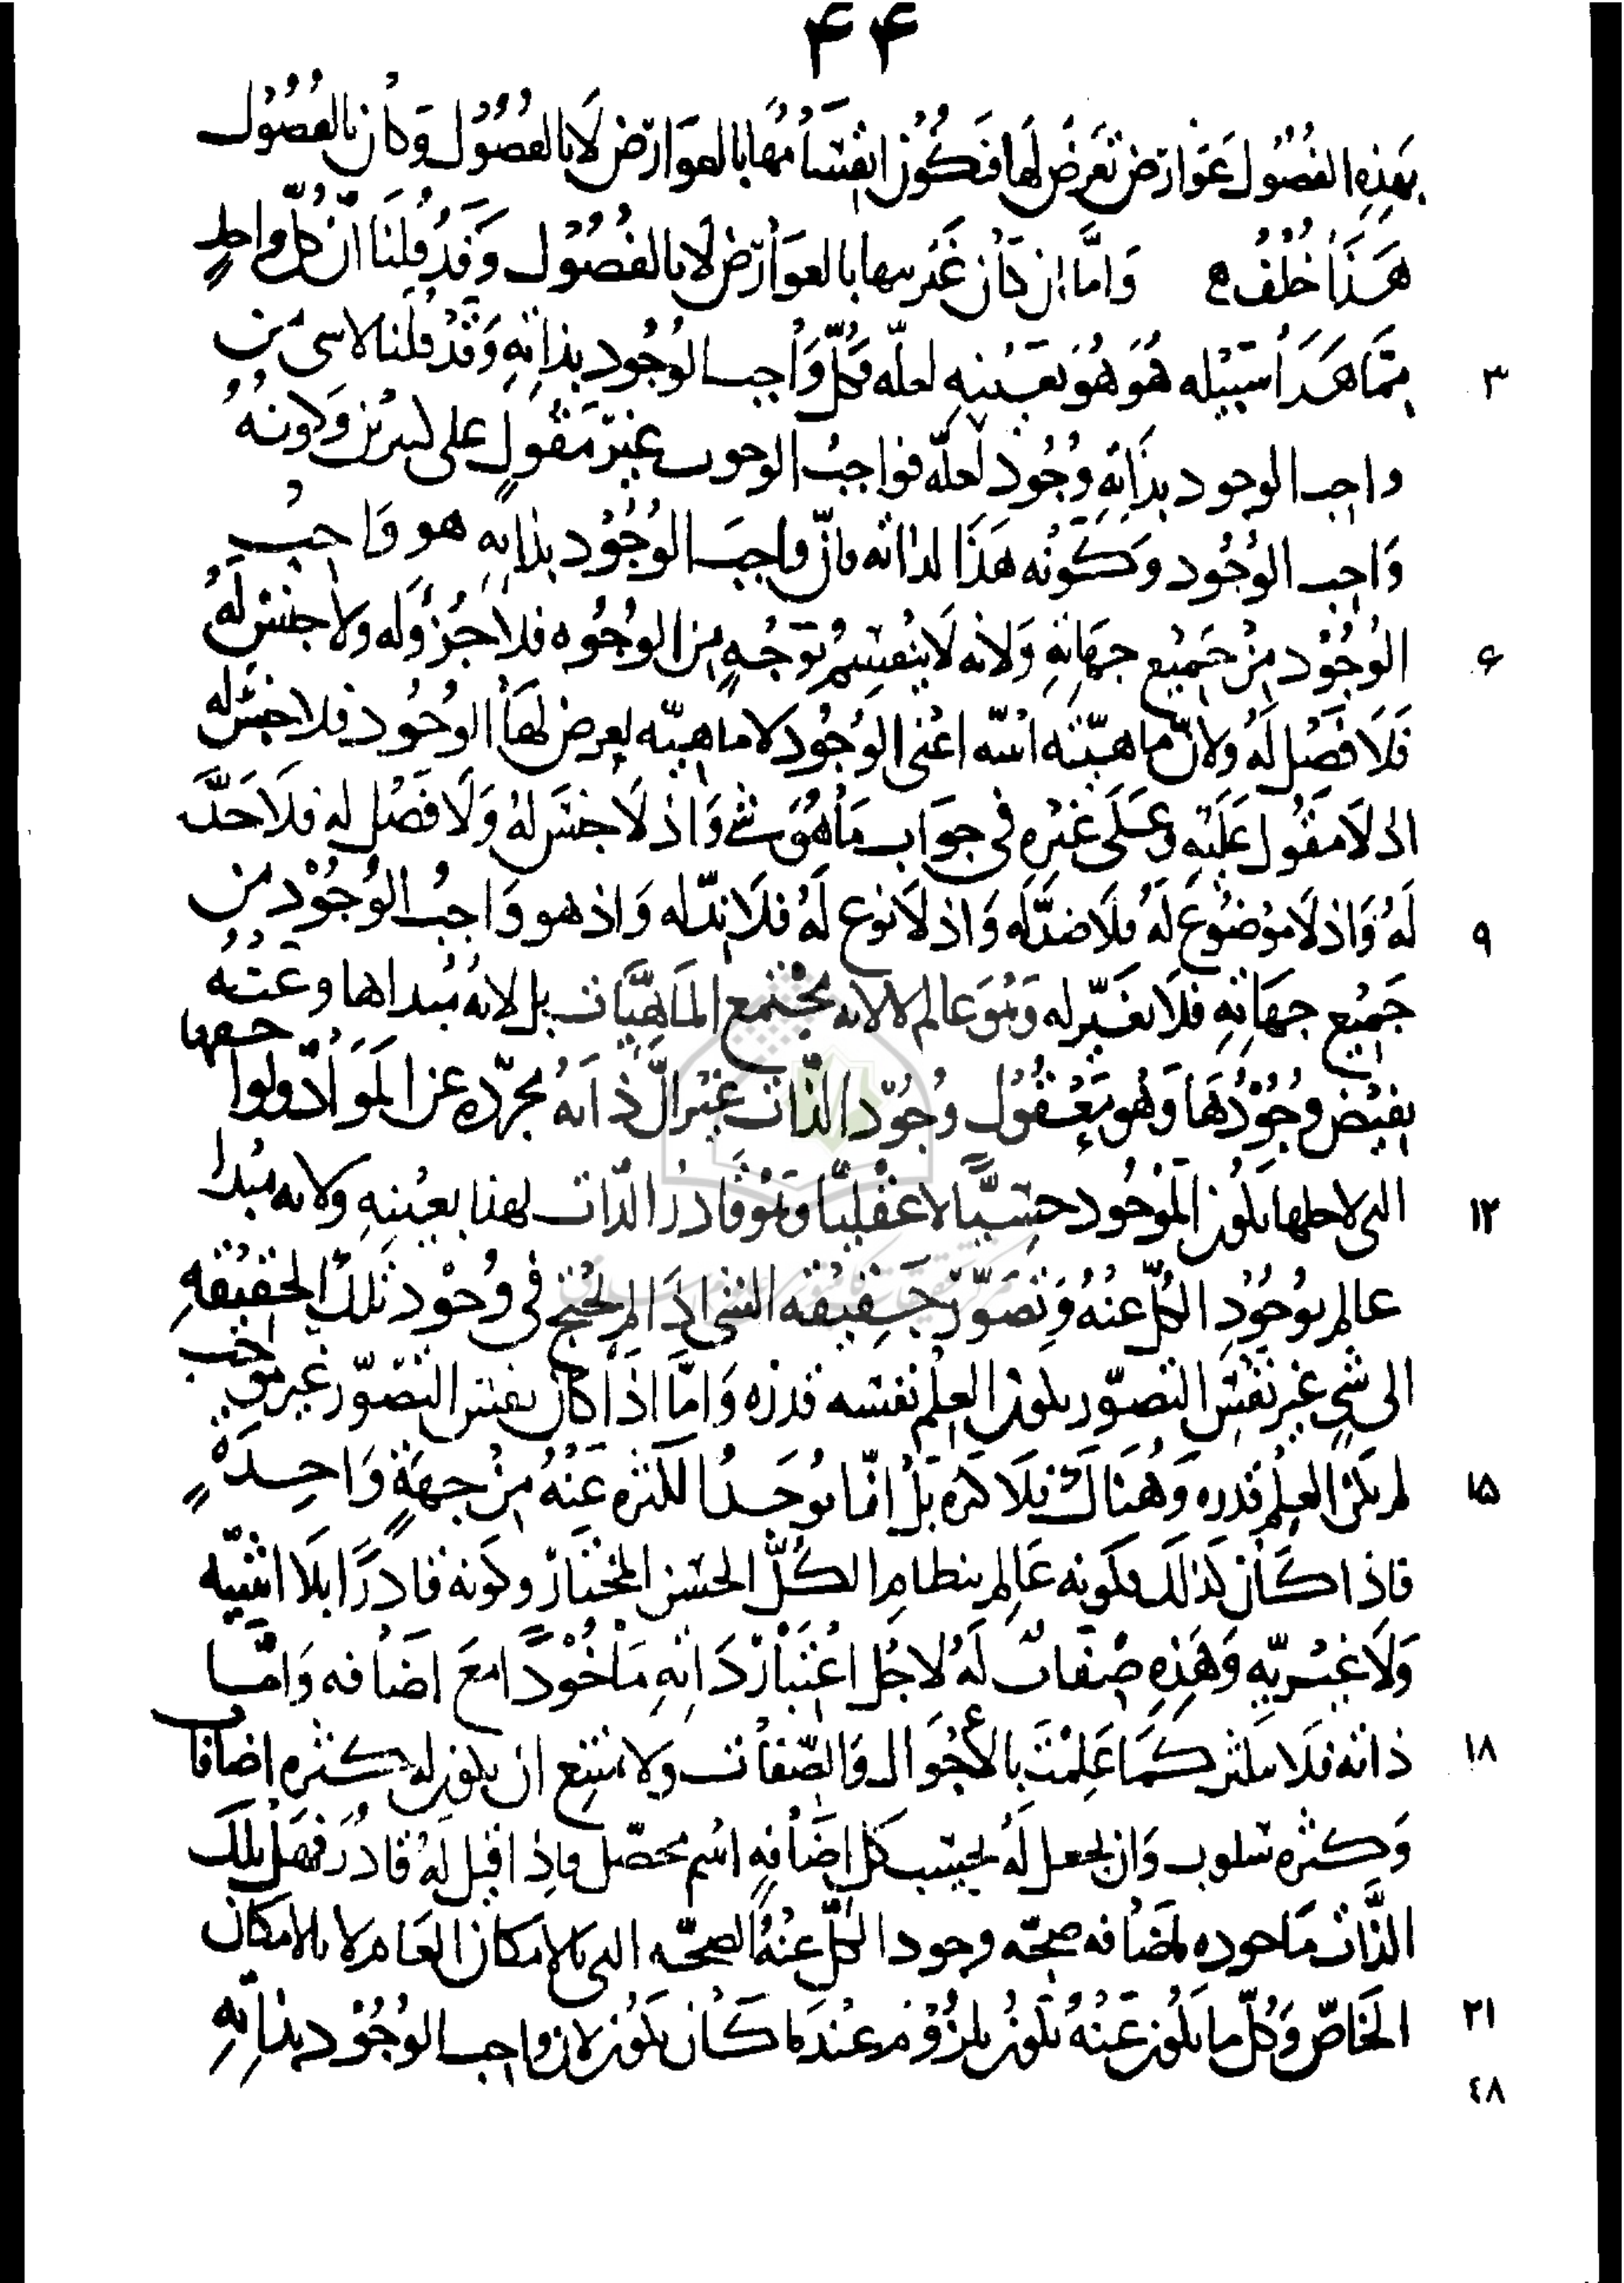 ۴۴
بهذه الفصول عوارض تعرض لها فتكون انقسامها بالعوارض لا بالفصول وكان بالفصول
هذا خلف وامّا ان كان غيريتها بالعوارض لا بالفصول وقد قلنا انّ كلّ واحد
ممّا هذا سبيله هو هو بعينه لعلّه فكلّ واجب الوجود بذاته وقد قلنا لا شى من ۳
واجب الوجود بذاته وجود لعلّه فواجب الوجود غير مقول على كثيرين ولكونه
واجب الوجود وكونه هذا لذاته فانّ واجب الوجود بذاته هو واجب
الوجود من جميع جهاته ولانه لا ينقسم بوجه من الوجوه فلا جزؤ له ولا جنس له ۶
فلا فصل له ولانّ ماهيّته انيّه اعنى الوجود لا ماهيّه يعرض لها الوجود فلا جنس له
اذ لا مقول عليه وعلى غيره فى جواب ما هو شئ واذ لا جنس له ولا فصل له فلا حدّ
له واذ لا موضوع له فلا ضدّ له واذ لا نوع له فلا ندّ له واذ هو واجب الوجود من ۹
جميع جهاته فلا تغيّر له وهو عالم لا لانه مجتمع الماهيّات بل لانه مبداها وعنه
يفيض وجودها وهو معقول وجود الذّات غير انّ ذاته مجرّده عن الموادّ ولواحقها
التى لاجلها يكون الموجود حسيّا لا عقليّا وهو قادر الذّات لهذا بعينه ولانه مبدا ۱۲
عالم بوجود الكلّ عنه وتصوّر حقيقه الشى اذا لم يحتج فى وجود تلك الحقيقه
الى شى غير نفس التصوّر يكون العلم نفسه قدره وامّا اذا كان نفس التصوّر غير موجب
لم يكن العلم قدره وهناك فلا كثره بل انّما يوجد الكثره عنه من جهة واحدة ۱۵
فاذا كان كذلك فكونه عالم بنظام الكلّ الحسن المختار وكونه قادرا بلا اثنيّيه
ولا غيريّه وهذه صفات له لاجل اعتبار ذاته ماخوذا مع اضافه وامّا
ذاته فلا يتكثر كما علمت بالأحوال والصّفات ولا يمتنع ان يكون له كثره اضافات ۱۸
وكثره سلوب وان يجعل له بحسب كل اضافه اسم محصّل فاذا قيل له قادر فهو تلك
الذّات ماخوذه باضافه صحّه وجود الكلّ عنه الصحّه التى بالامكان العام لا بالامكان
الخاصّ وكلّ ما يكون عنه يكون بلزوم عندما كان يكون لان واجب الوجود بذاته ۲۱
٤٨